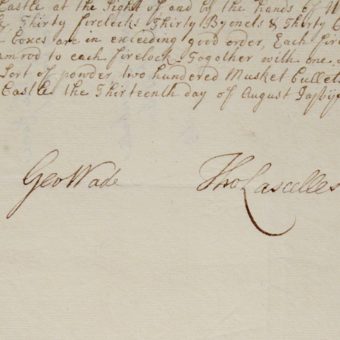 Castle at the Sight of and by the hands of
Thirty firelocks Thirty Byonets & Thirty C
boxes are in exceeding good order, Each fire
amrod to each firelock Together with one
Sort of powder two hundred Musket Bullets
Castle the Thirteenth day of August
Geo Wade Tho Lascelles